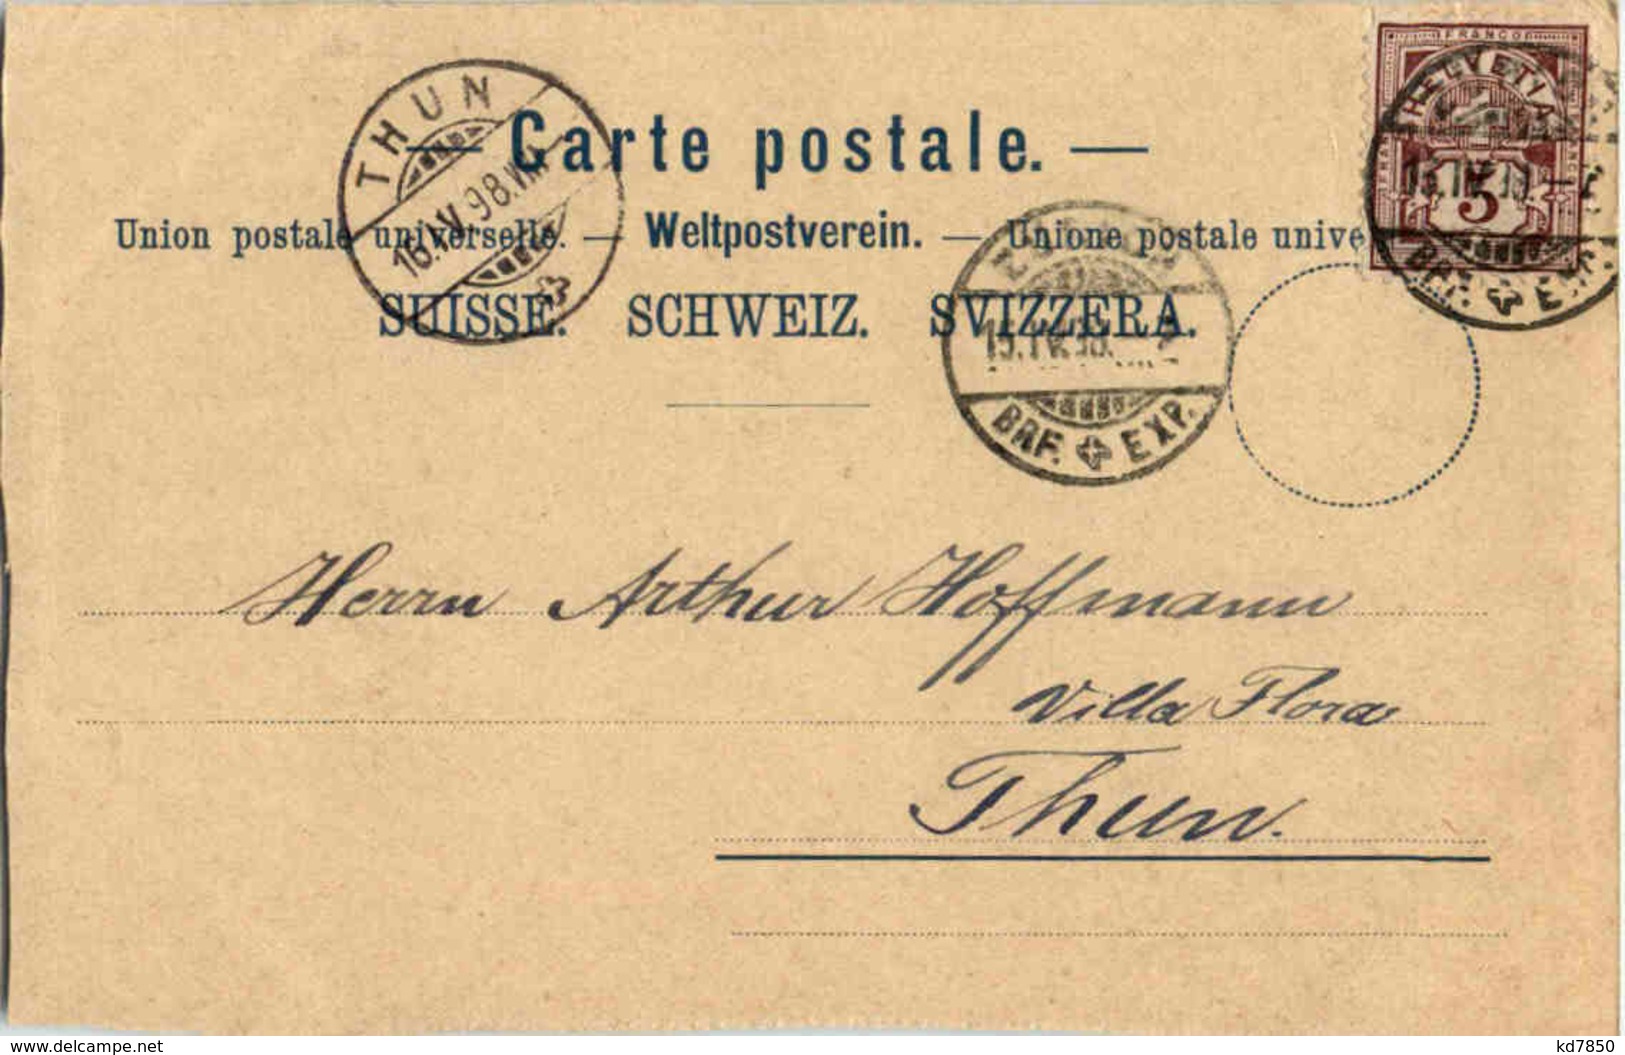 FRANCO
HELVETIA
5
THUN
16.IV.98.VIII
— Carte postale. —
Union postale universelle. — Weltpostverein. — Unione postale unive
SUISSE. SCHWEIZ. SVIZZERA.
15.IV.98.
BRF. EXP.
BRF. EXP.
Herrn Arthur Hoffmann
Villa Flora
Thun.
www.delcampe.net
kd7850